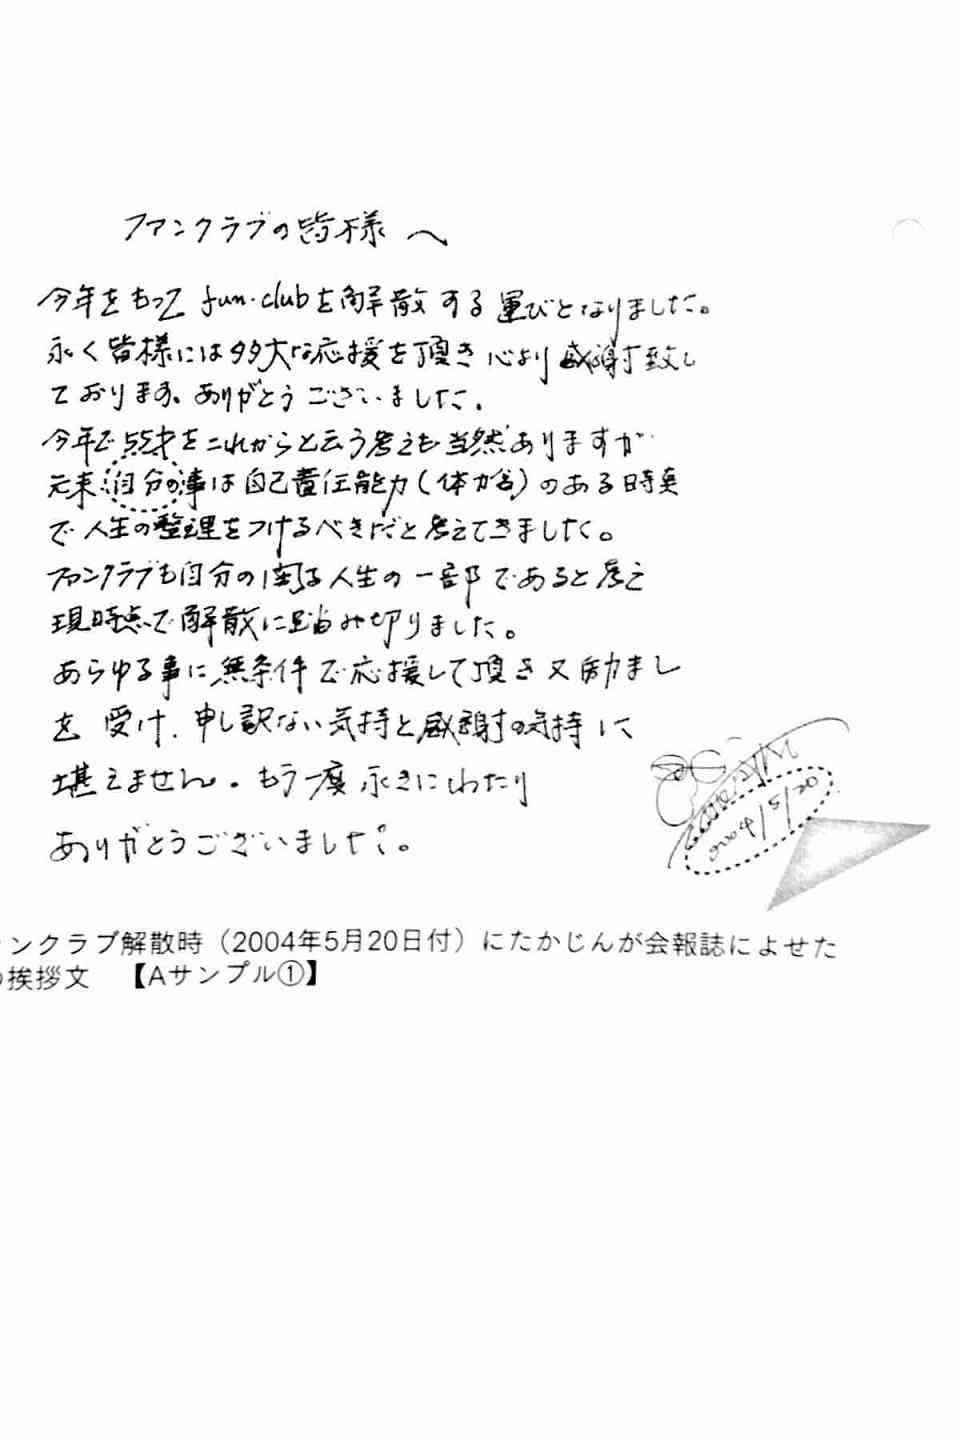 ファンクラブの皆様へ
今年をもって fun・clubを解散する運びとなりました。
永く皆様には多大な応援を頂き心より感謝致し
ております。ありがとうございました。
今年で55才をこれからと云う考えも当然ありますが
元来自分の事は自己責任能力(体力含)のある時点
で人生の整理をつけるべきだと考えてきました。
ファンクラブも自分の 人生の一部であると考え
現時点で解散に踏み切りました。
あらゆる事に無条件で応援して頂き又励まし
を受け、申し訳ない気持と感謝の気持に
堪えません。もう一度永きにわたり
ありがとうございました。
2004/5/20
ンクラブ解散時(2004年5月20日付)にたかじんが会報誌によせた
の挨拶文 【Aサンプル①】